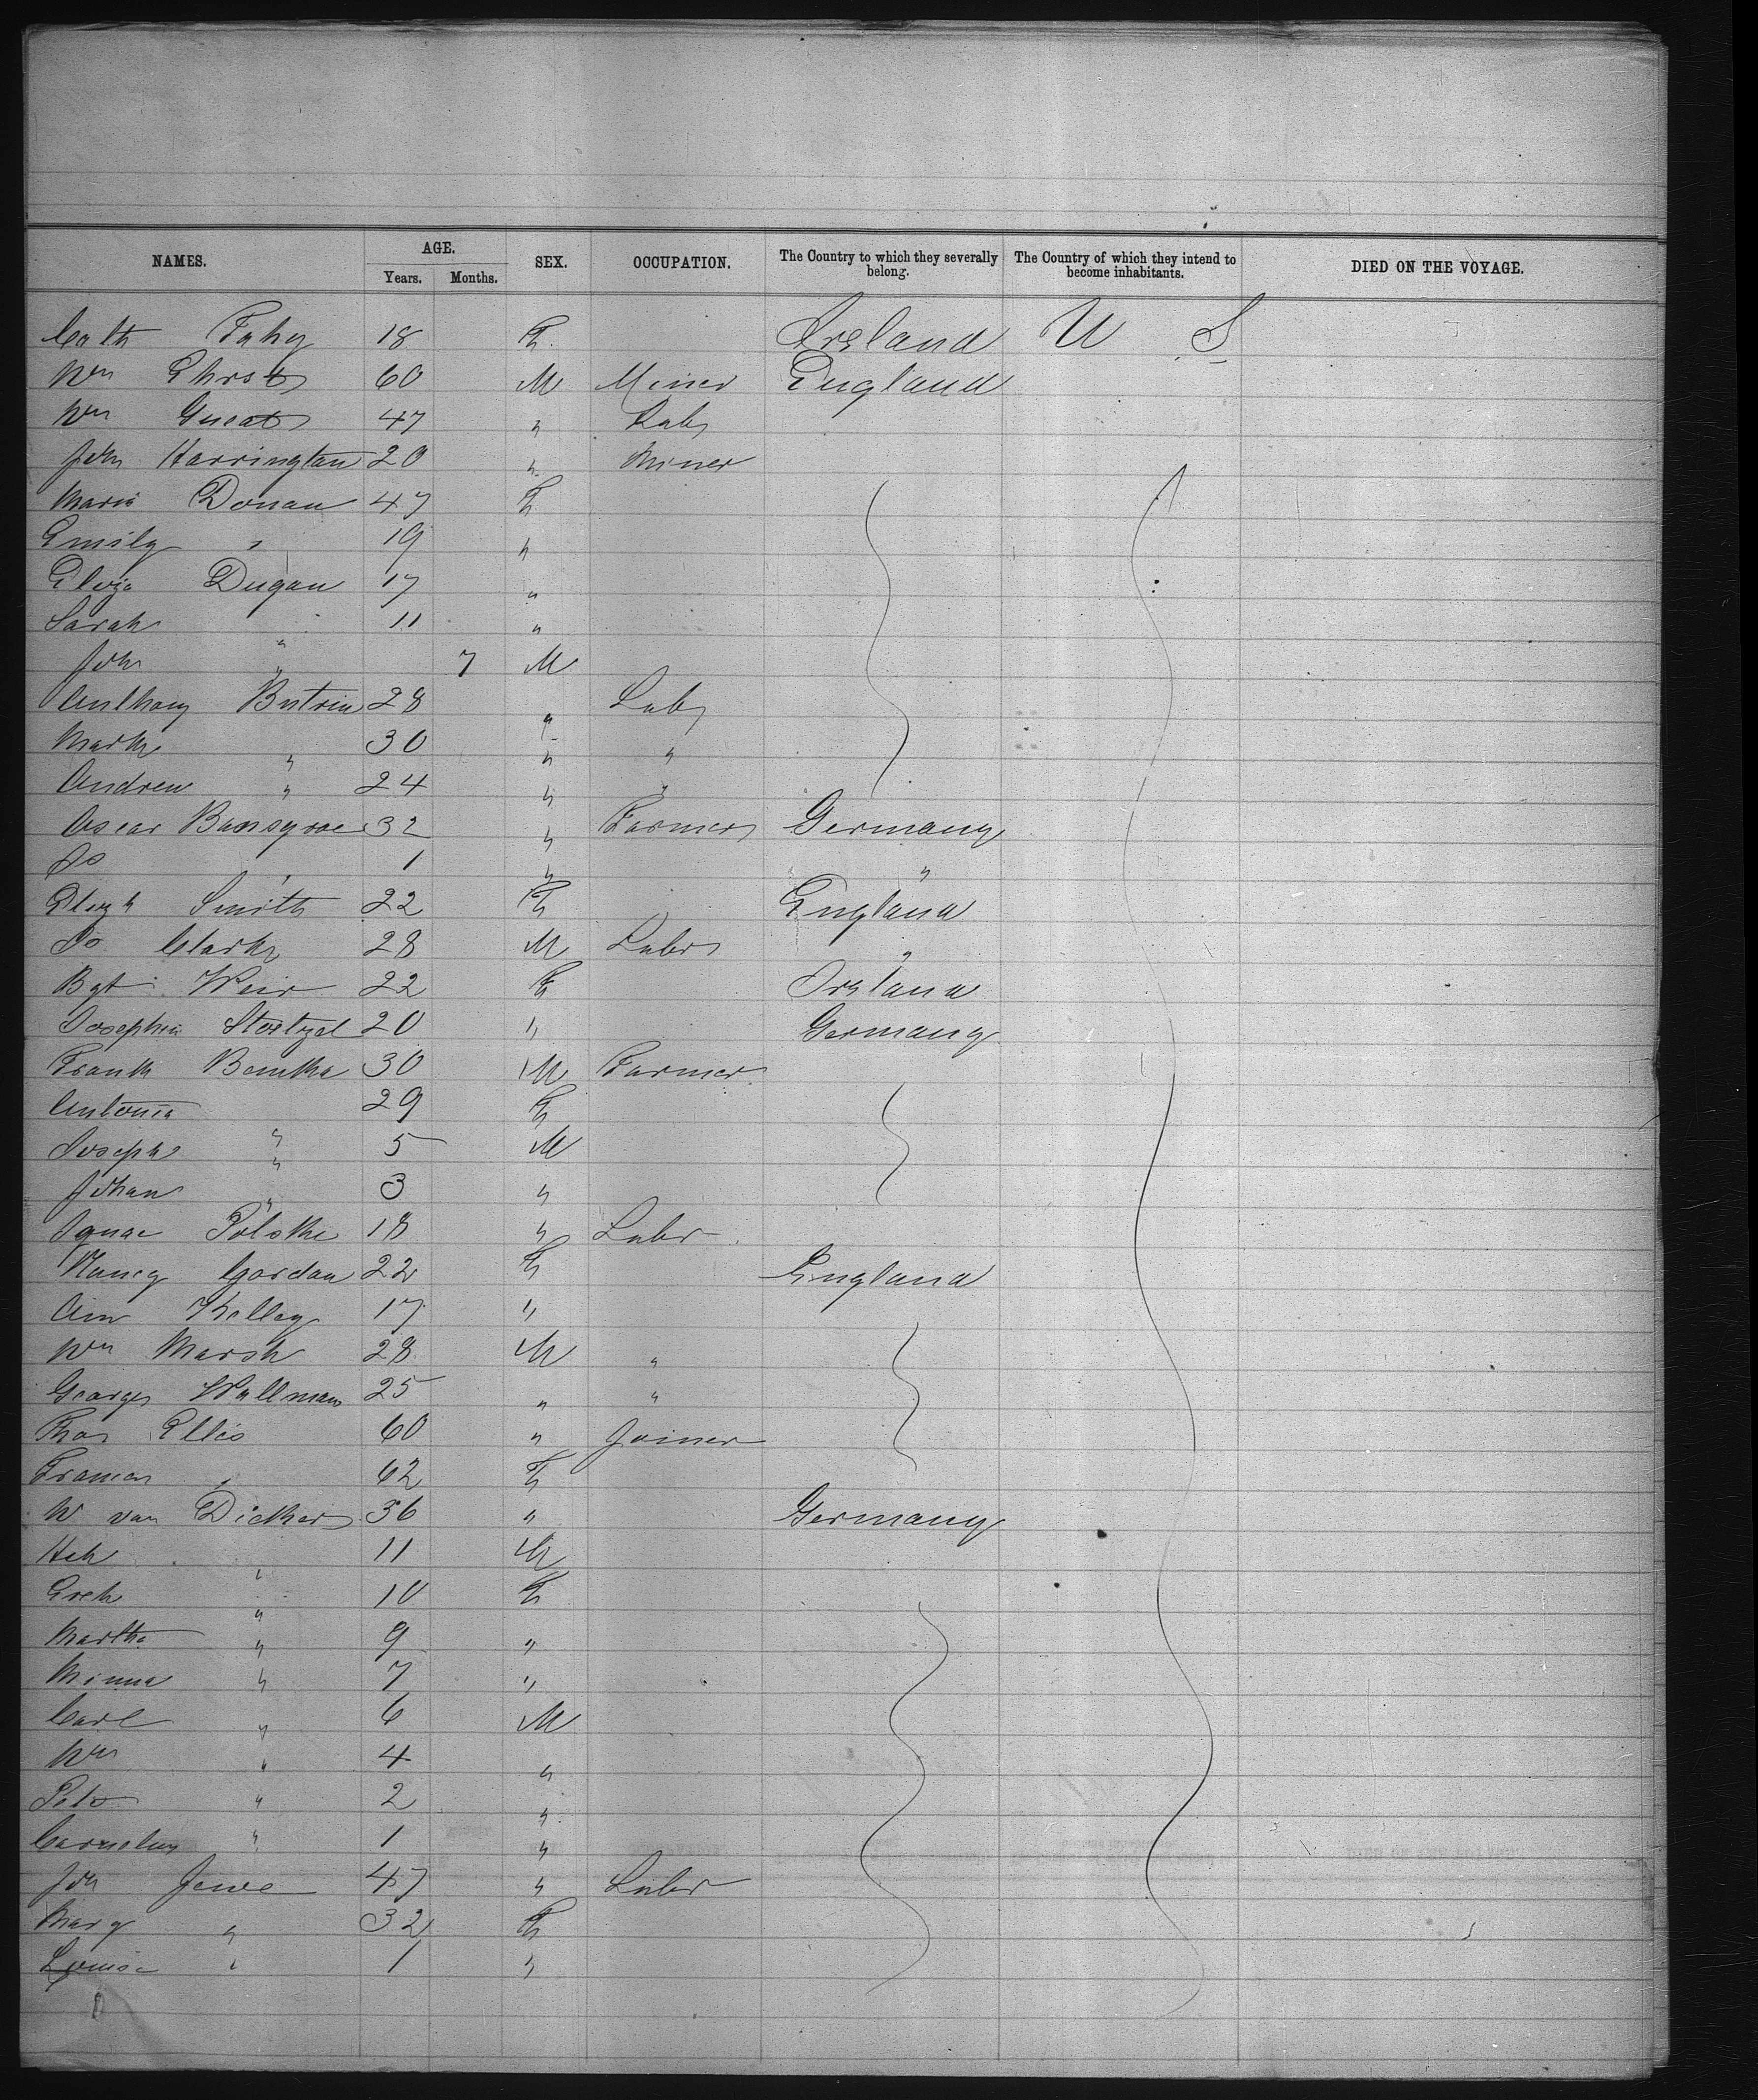 NAMES. AGE. SEX. OCCUPATION. The Country to which they severally belong. The Country of which they intend to become inhabitants. DIED ON THE VOYAGE.
Years. Months.
Cath Fahy 18 F. Ireland U S
Wm 60 M Miner England
Wm 47 " Labr
John Harrington 20 " Miner
Maria Donau 47 F
Emily " 19 "
Eliza Dugan 17 "
Sarah " 11 "
John " 7 M
Anthony 28 " Labr
Mark " 30 " "
Andrew " 24 " "
Oscar 32 " Farmer Germany
Jo " 1 " "
Elizth Smith 22 F England
Jo Clarke 28 M Labr "
Bgt Weir 22 F Ireland
Josephin 20 " Germany
Frank 30 M Farmer
Antonia " 29 F
Joseph " 5 M
Johan " 3 "
Ignac Polske 18 " Labr
Nancy Gordan 22 F England
Ann Kelley 17 "
Wm Marsh 28 M "
George Wallman 25 " "
Thos Ellis 60 " Joiner
Frances " 62 F
W van Dicker 36 " Germany
Hch " 11 M
Greth " 10 F
Martha " 9 "
Minna " 7 "
Carl " 6 M
Wm " 4 "
Peter " 2 "
Cornelius " 1 "
Joh Jewe 47 " Labr
Marg " 32 F
Louisa " 1 "